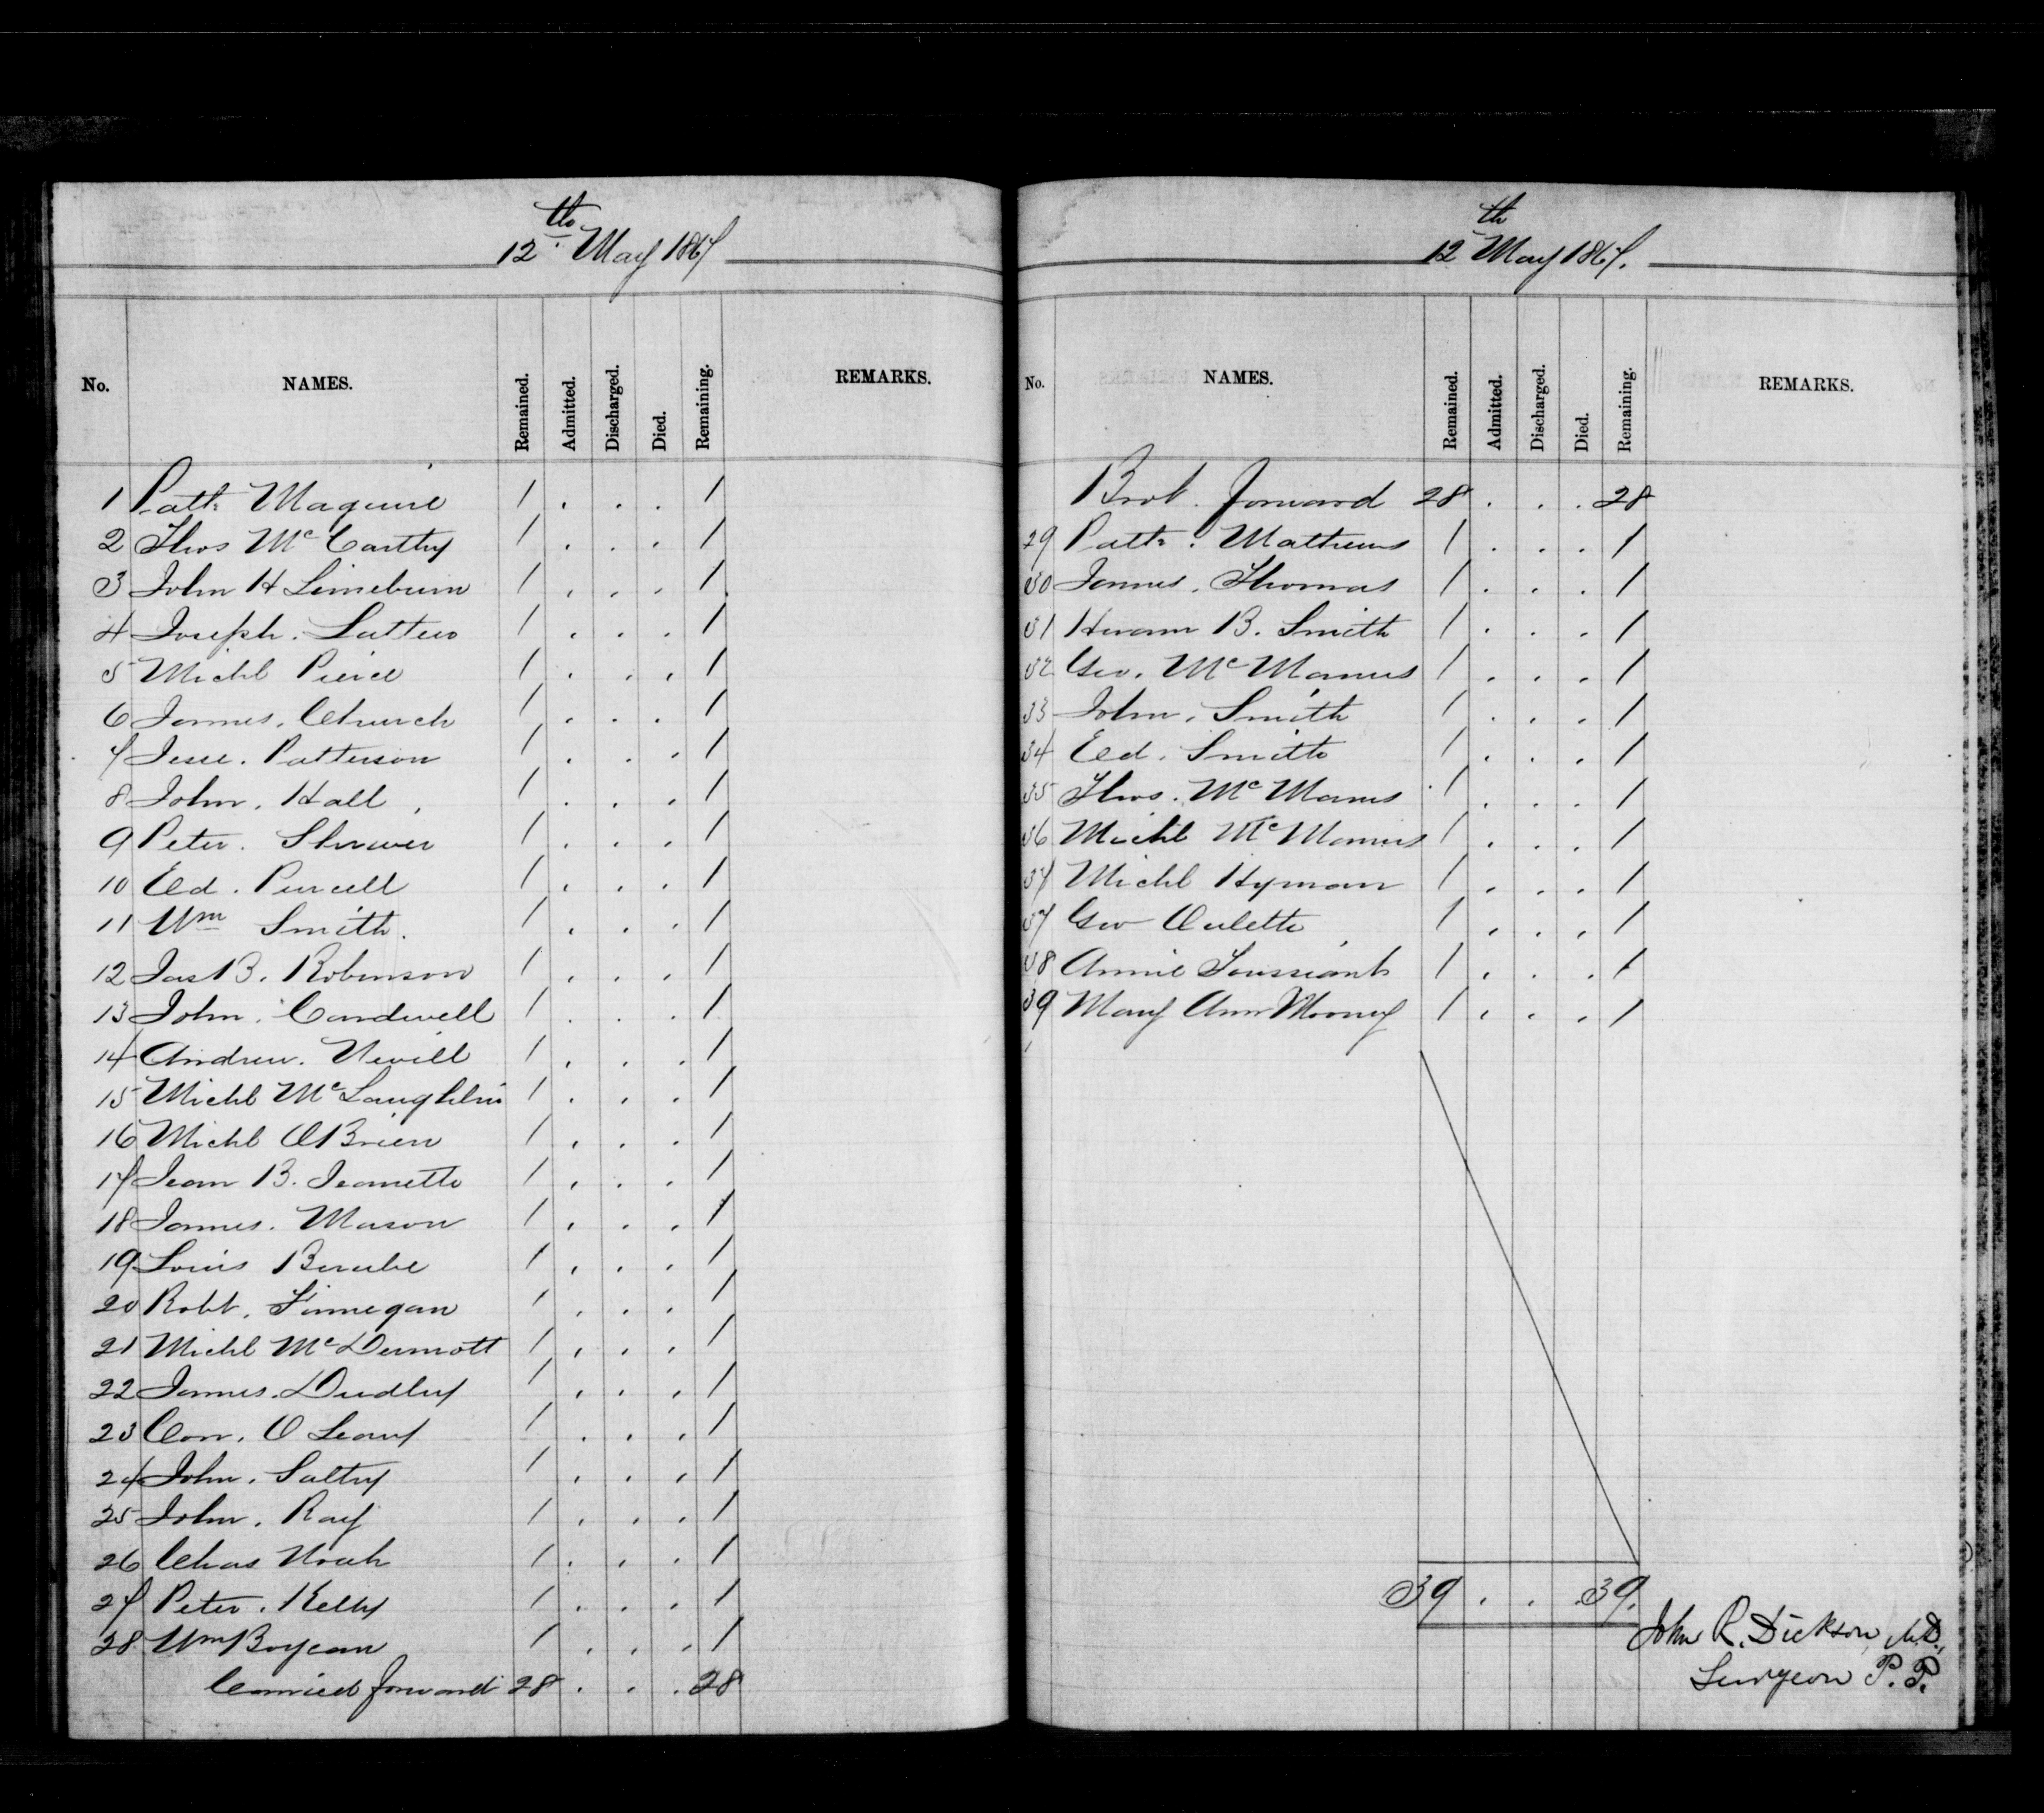 12th May 1867
No. NAMES. Remained. Admitted. Discharged. Died. Remaining. REMARKS.
1 Patk Maguire 1 . . . 1
2 Thos McCarthy 1 . . . 1
3 John H Limeburn 1 . . . 1
4 Joseph. Latten 1 . . . 1
5 Michl Pierce 1 . . . 1
6 James. Church 1 . . . 1
7 Jesse. Patterson 1 . . . 1
8 John. Hall 1 . . . 1
9 Peter. Shriver 1 . . . 1
10 Ed. Purcell 1 . . . 1
11 Wm Smith. 1 . . . 1
12 Jas B. Robinson 1 . . . 1
13 John. Cardwell 1 . . . 1
14 Andrew. Nevill 1 . . . 1
15 Michl McLaughlin 1 . . . 1
16 Michl OBrien 1 . . . 1
17 Jean B. Jeanette 1 . . . 1
18 James. Mason 1 . . . 1
19 Louis Berube 1 . . . 1
20 Robt. Finnegan 1 . . . 1
21 Michl McDermott 1 . . . 1
22 James. Dudley 1 . . . 1
23 Con. O Leary 1 . . . 1
24 John. Saltry 1 . . . 1
25 John. Ray 1 . . . 1
26 Chas Noah 1 . . . 1
27 Peter. Kelly 1 . . . 1
28 Wm Boyean 1 . . . 1
Carried forward 28 . . . 28
12th May 1867.
No. NAMES. Remained. Admitted. Discharged. Died. Remaining. REMARKS.
Brot. forward 28 . . . 28
29 Patk. Mathews 1 . . . 1
30 James. Thomas 1 . . . 1
31 Hiram B. Smith 1 . . . 1
32 Geo. McManus 1 . . . 1
33 John. Smith 1 . . . 1
34 Ed. Smith 1 . . . 1
35 Thos. McManus 1 . . . 1
36 Michl McManus 1 . . . 1
37 Michl Hyman 1 . . . 1
37 Geo Oulette 1 . . . 1
38 Annie Toussiant 1 . . . 1
39 Mary Ann Mooney 1 . . . 1
39 . . . 39.
John R. Dickson, M.D.,
Surgeon P. P.